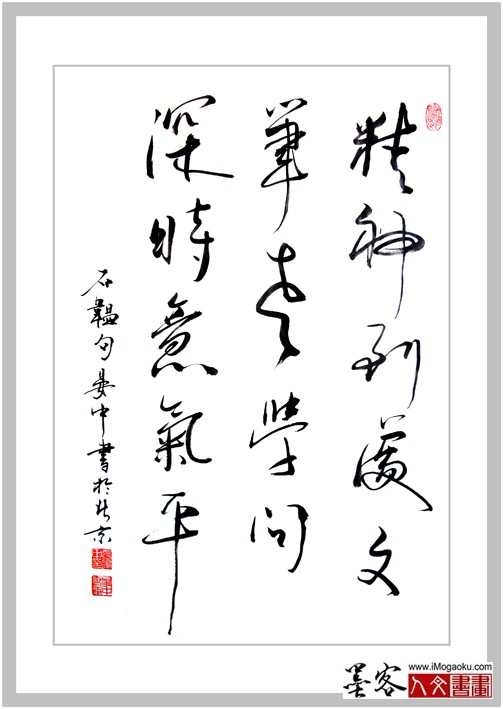 精神到處文
章老學問
深時意氣平
石韞句晏中書於北京
墨客
www.iMogaoku.com
人文書畫